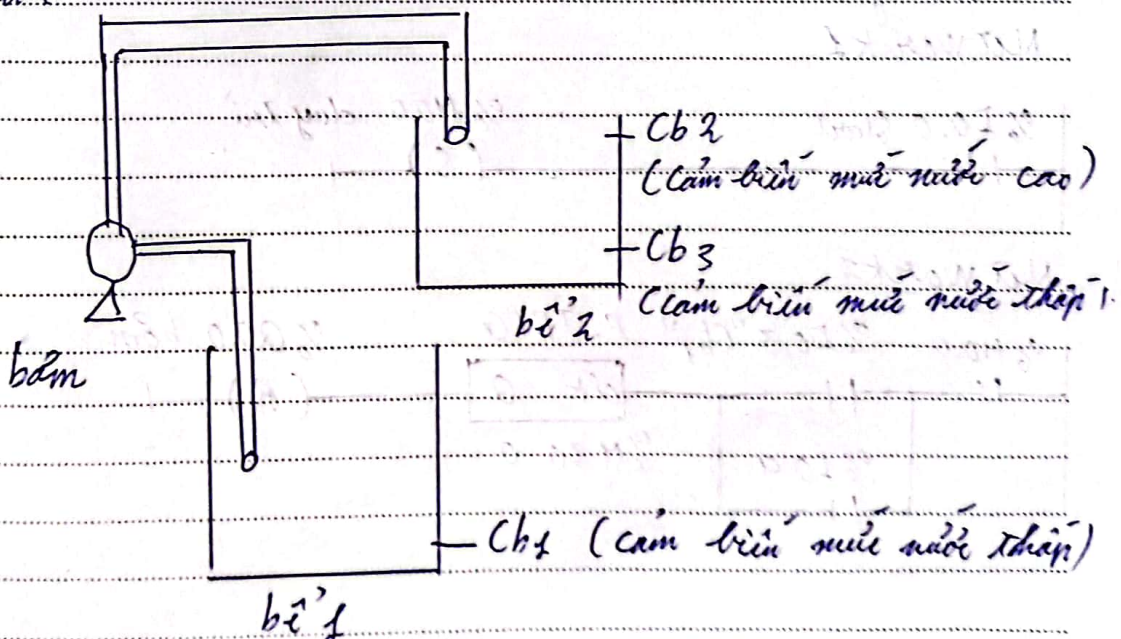 Cb2
(Cảm biến mức nước cao)
Cb3
(Cảm biến mức nước thấp).
bể 2
bơm
Cb1 (cảm biến mức nước thấp)
bể 1